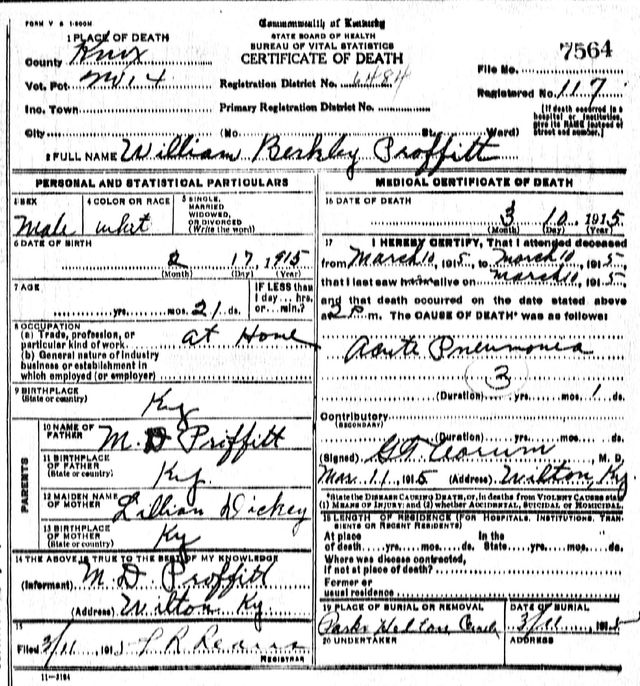 FORM V S 1-500M
Commonwealth of Kentucky
STATE BOARD OF HEALTH
BUREAU OF VITAL STATISTICS
CERTIFICATE OF DEATH
1 PLACE OF DEATH
County Knox
Vot. Pct
Inc. Town
City
(No. St., Ward)
Registration District No. 6484
Primary Registration District No.
File No. 7564
Registered No. 117
[If death occurred in a hospital or institution, give its NAME instead of street and number.]
2 FULL NAME William Berkley Proffitt
PERSONAL AND STATISTICAL PARTICULARS
3 SEX
Male
4 COLOR OR RACE
whit
5 SINGLE, MARRIED WIDOWED, OR DIVORCED (Write the word)
6 DATE OF BIRTH
2 17, 1915
(Month) (Day) (Year)
7 AGE
yrs. mos. 21 ds.
IF LESS than
1 day... hrs.
or... min.?
8 OCCUPATION
(a) Trade, profession, or
particular kind of work at Home
(b) General nature of industry
business or establishment in
which employed (or employer)
9 BIRTHPLACE
(State or country)
Ky
PARENTS
10 NAME OF FATHER
M. D Priffitt
11 BIRTHPLACE OF FATHER
(State or country)
Ky.
12 MAIDEN NAME OF MOTHER
Lillian Dickey
13 BIRTHPLACE OF MOTHER
(State or country)
Ky
14 THE ABOVE IS TRUE TO THE BEST OF MY KNOWLEDGE
(Informant) M. D Proffitt
(Address) Wilton Ky.
15
Filed 3/11 191
REGISTRAR
11-3184
MEDICAL CERTIFICATE OF DEATH
16 DATE OF DEATH
3 10 1915
(Month) (Day) (Year)
17 I HEREBY CERTIFY, That I attended deceased
from March 10, 1915, to March 10, 1915
that I last saw him alive on March 10, 1915
and that death occurred on the date stated above
at 2 P m. The CAUSE OF DEATH* was as follows:
Acute Pneumonia
3
(Duration) yrs. mos. 1 ds.
Contributory
(SECONDARY)
(Duration) yrs. mos. ds.
(Signed) M. D.
Mar. 11, 1915 (Address) Wilton, Ky.
*State the DISEASE CAUSING DEATH, or, in deaths from VIOLENT CAUSES state
(1) MEANS OF INJURY; and (2) whether ACCIDENTAL, SUICIDAL or HOMICIDAL.
18 LENGTH OF RESIDENCE (FOR HOSPITALS, INSTITUTIONS, TRANSIENTS OR RECENT RESIDENTS)
At place In the
of death yrs. mos. ds. State yrs. mos. ds.
Where was disease contracted,
if not at place of death?
Former or
usual residence
19 PLACE OF BURIAL OR REMOVAL
DATE OF BURIAL
3/11
20 UNDERTAKER
ADDRESS